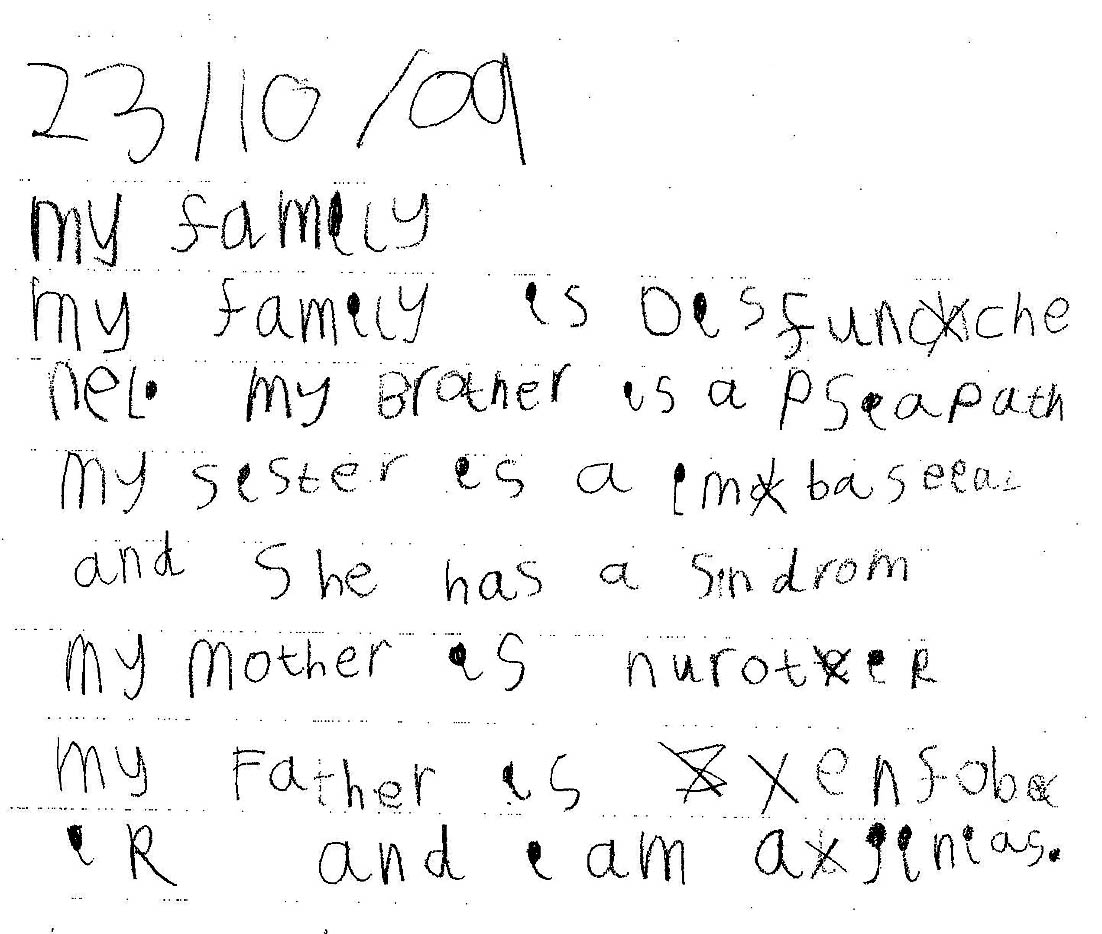 23/10/09
my famely
my famely is Disfunche
nel. my Brother is a pseapath
my sister is a imbaseeal
and She has a sindrom
my mother is nuroteer
my Father is xenfobe
iR and i am a jinias.